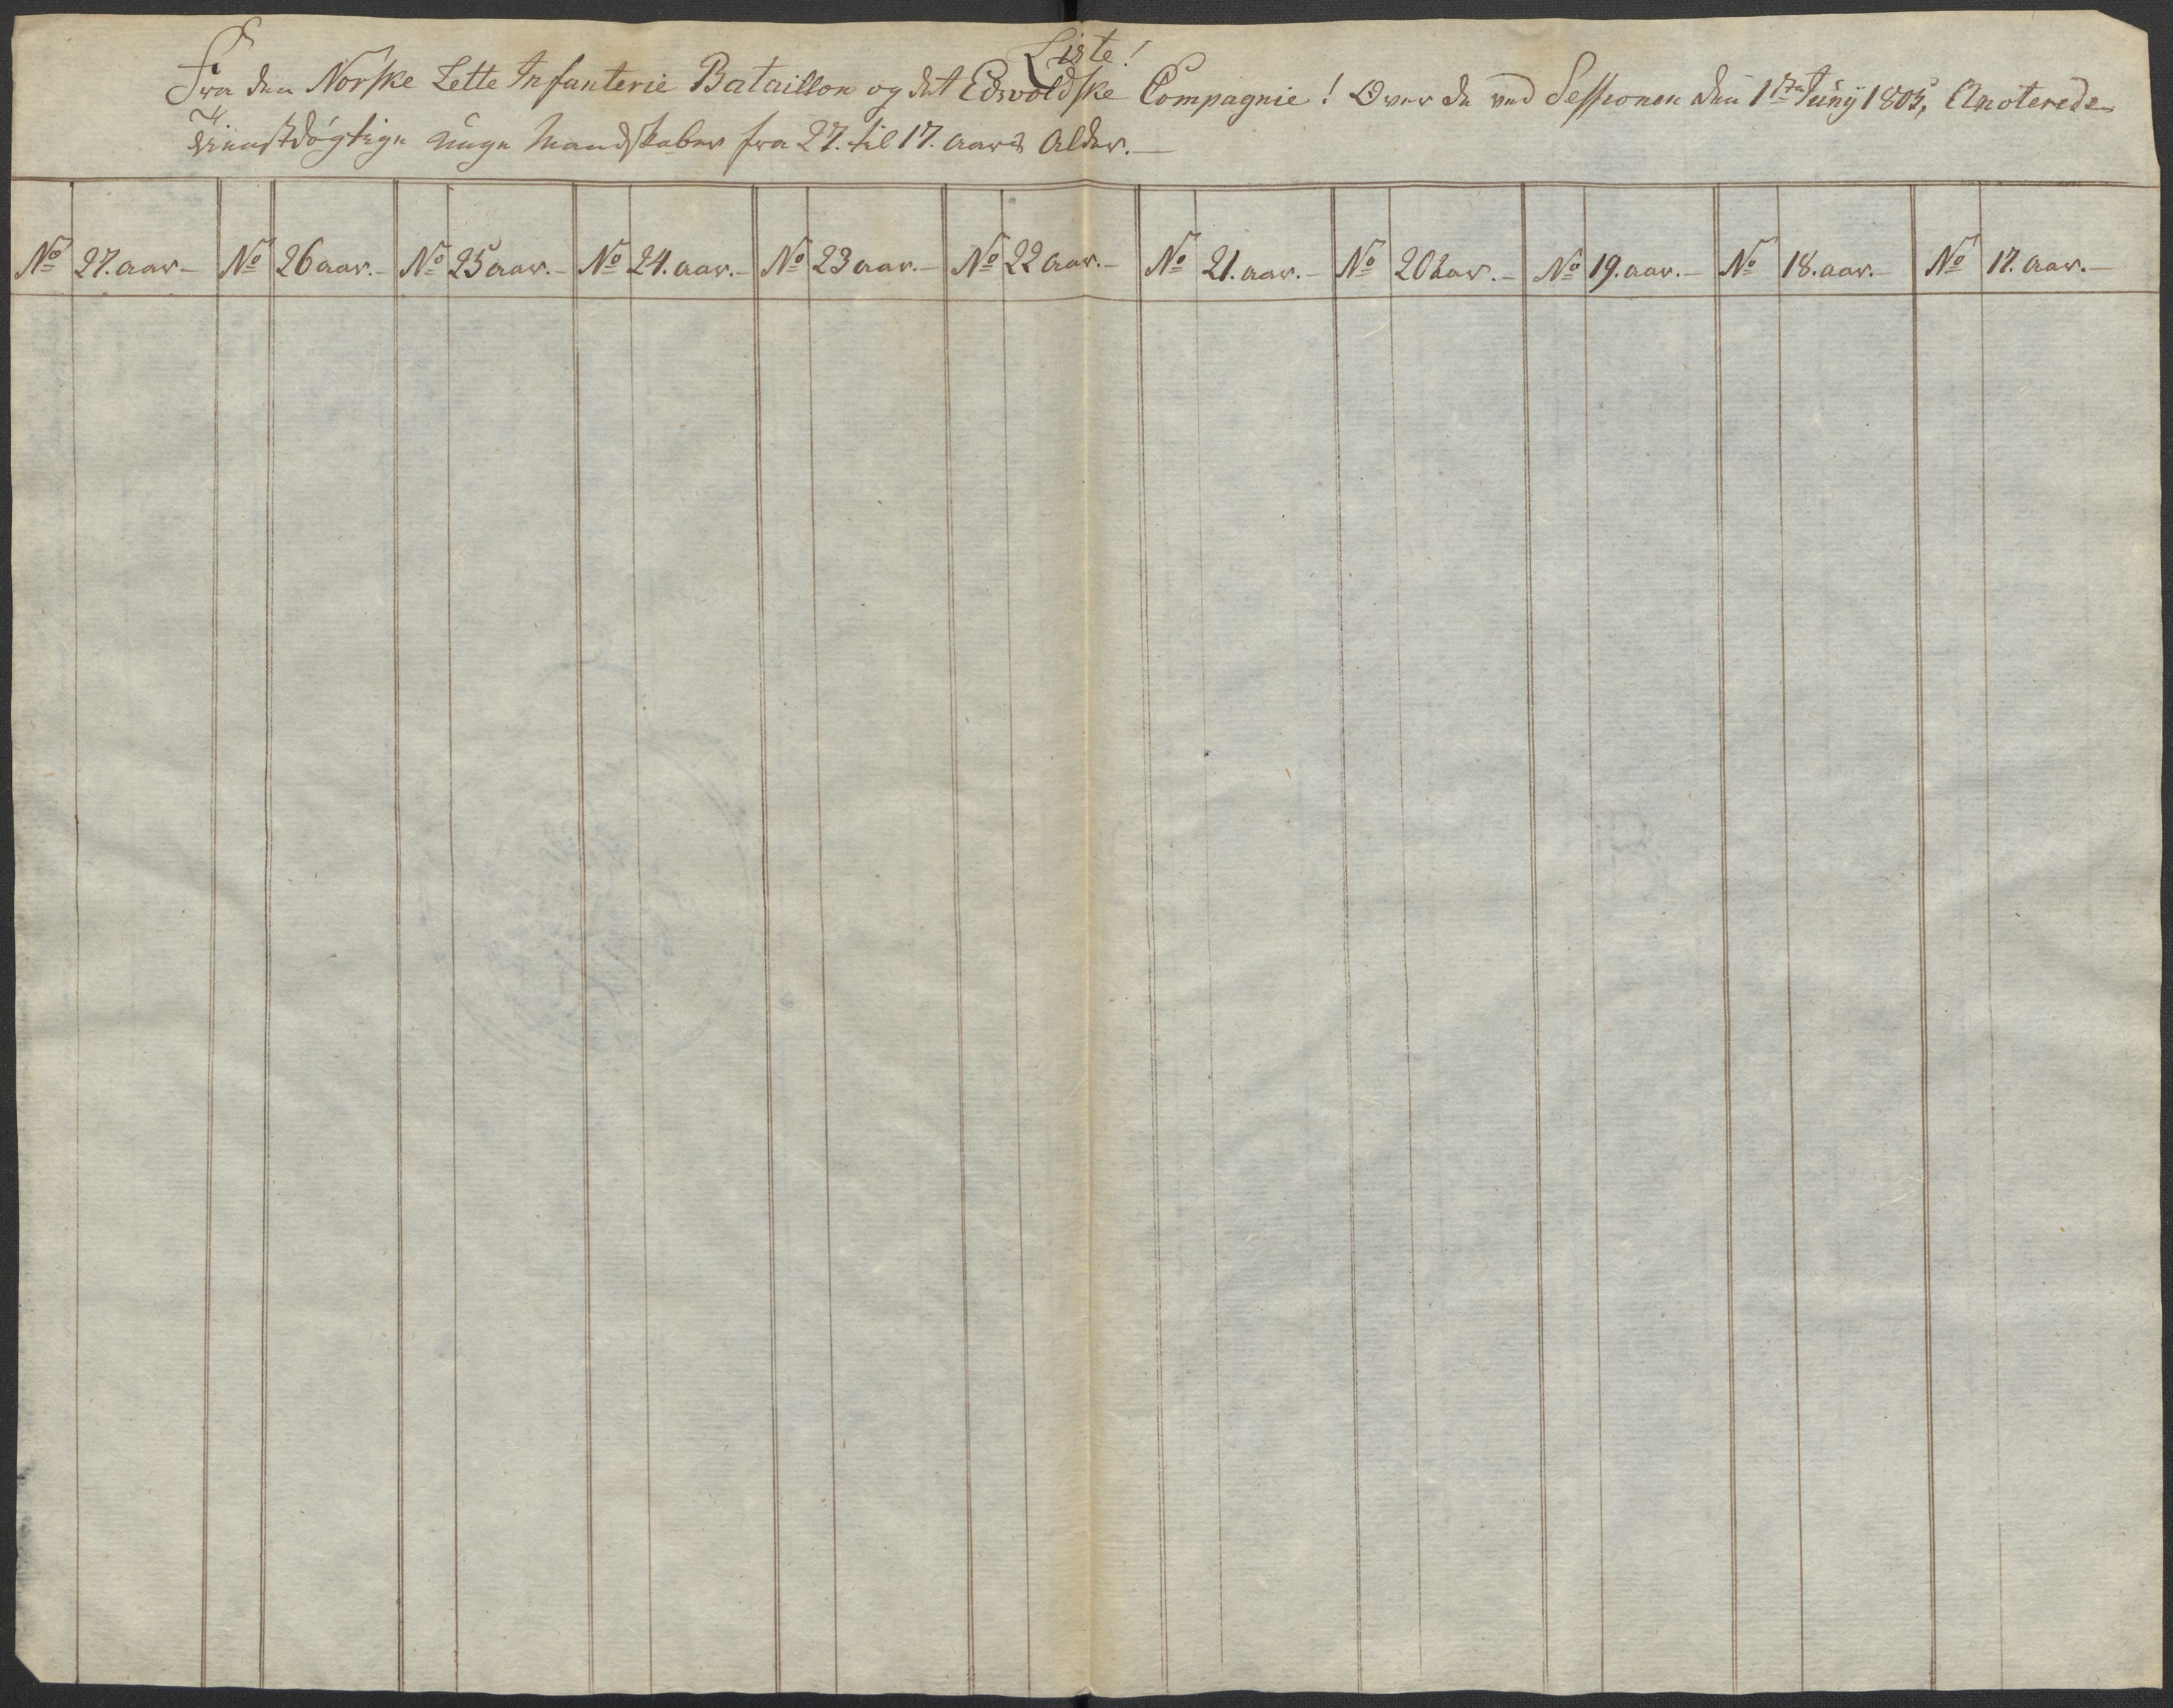 Liste!
Fra den Norske Lette Infanterie Bataillon og det Edsvoldske Compagnie! Over de ved Sessionen den 1ste Junÿ 1805, Anoterede
Tienestdÿgtige unge Mandskaber fra 27. til 17. aars Alder.—
No 27. aar— No 26 aar.— No 25 aar.— No 24. aar.— No 23 aar.— No 22 aar.— No 21. aar.— No 20 aar.— No 19. aar.— No 18. aar.— No 17. aar.—